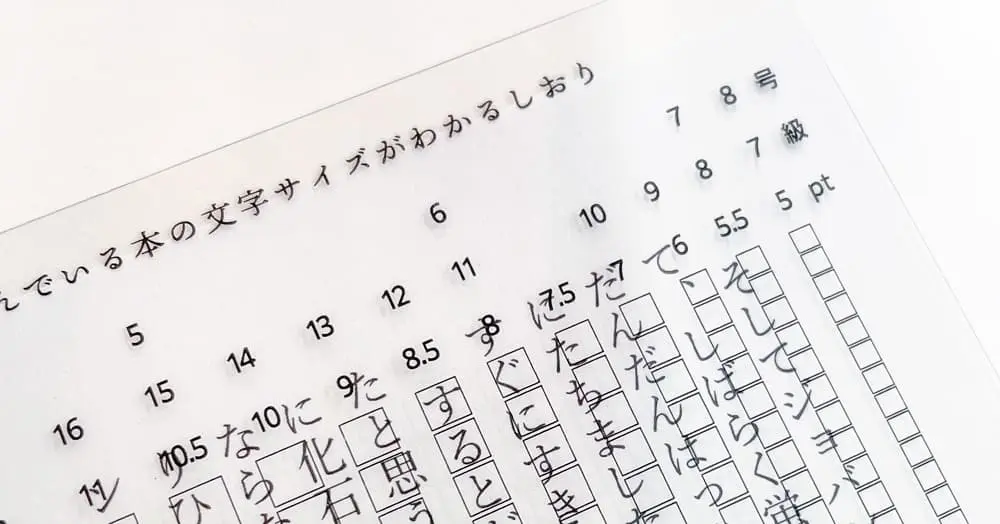 んでいる本の文字サイズがわかるしおり
5 6 7 8 号
16 15 14 13 12 11 10 9 8 7 級
11 10.5 10 9 8.5 8 7.5 7 6 5.5 5 pt
そしてジョバ
て、しばらく蛍
だんだんはっ
にたちました
すぐにすき
するとど
たと思う
に化石
ならな
ひ